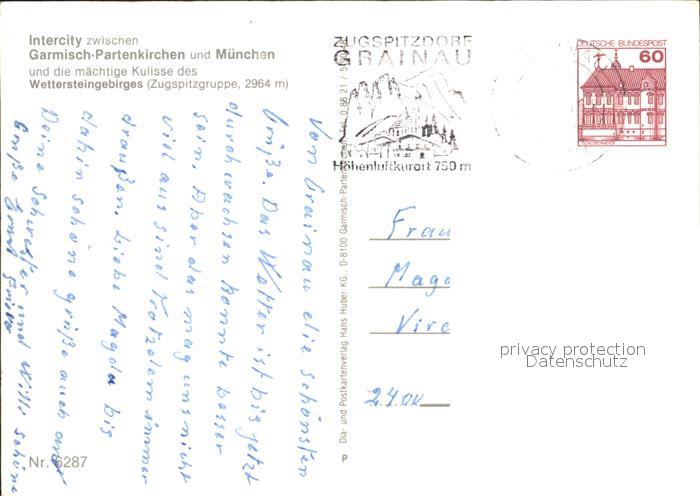 Intercity zwischen
Garmisch-Partenkirchen und München
und die mächtige Kulisse des
Wettersteingebirges (Zugspitzgruppe, 2964 m)
ZUGSPITZDORF
GRAINAU
Höhenluftkurort 750 m
DEUTSCHE BUNDESPOST
60
Von Grainau die schönsten
Grüße. Das Wetter ist bis jetzt
durchwachsen könnte besser
sein. Aber das mag uns nicht
viel aus sind trotzdem immer
draußen. Liebe Magda bis
dahin schöne Grüße auch an
Deine Schwester und Willi schöne
Grüße
Dia- und Postkartenverlag Hans Huber KG., D-8100 Garmisch-Parten
Frau
Magd
Vire
2400
privacy protection
Datenschutz
Nr. 6287
P